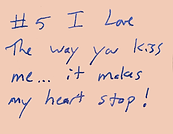 #5 I Love
The way you kiss
me... it makes
my heart stop!